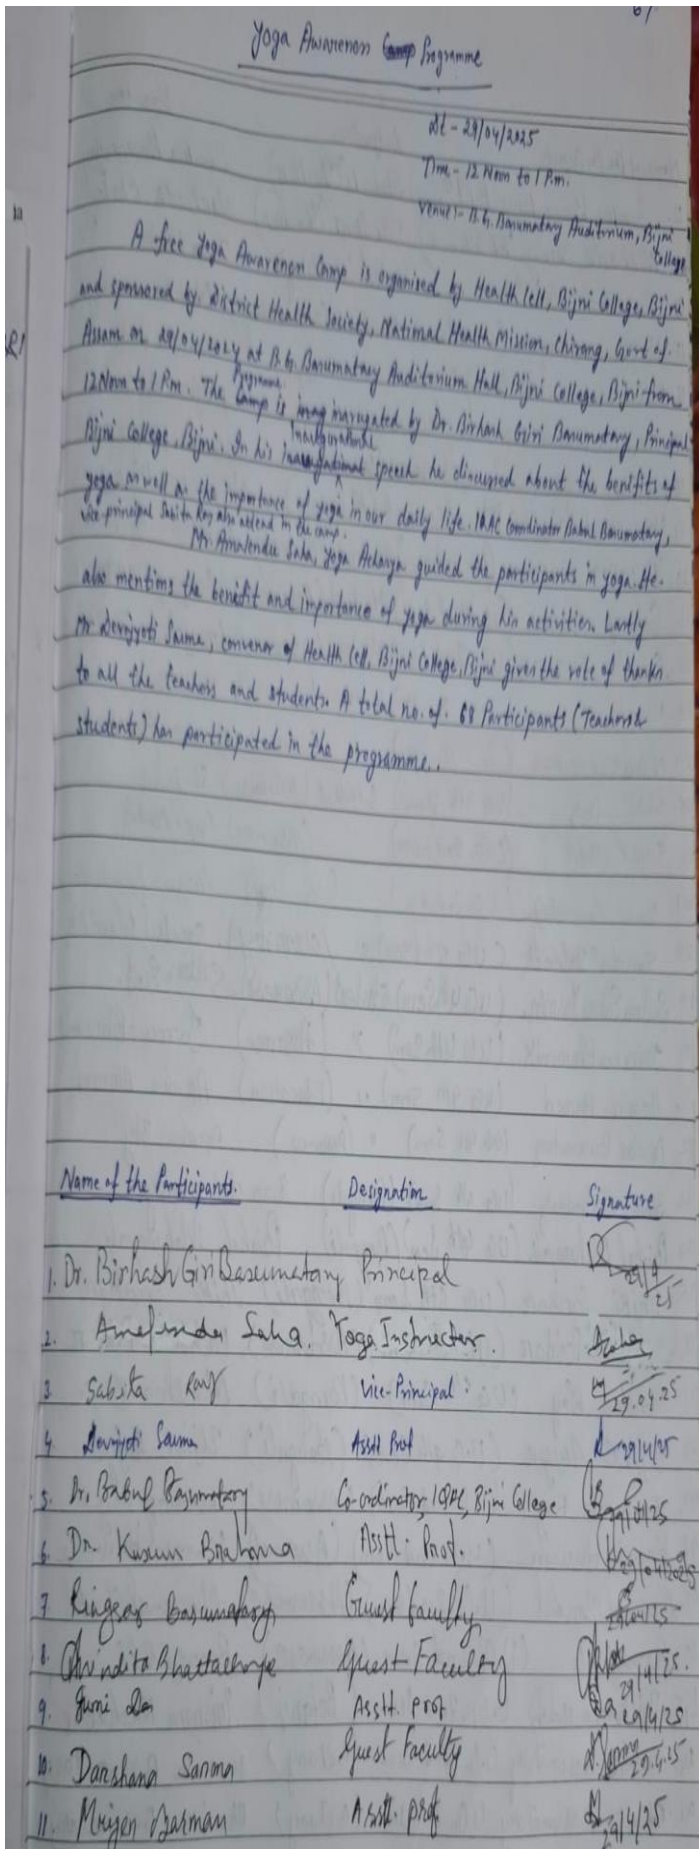 61
Yoga Awareness Programme
Dt - 29/04/2025
Time - 12 Noon to 1 P.m.
Venue :- B.G. Basumatary Auditorium, Bijni
College
A free Yoga Awareness Camp is organised by Health Cell, Bijni College, Bijni
and sponsored by District Health Society, National Health Mission, Chirang, Govt of.
Assam on 29/04/2024 at B.G. Basumatary Auditorium Hall, Bijni College, Bijni from
12 Noon to 1 P.m. The Programme is inaugated by Dr. Birhash Giri Basumatary, Principal
Bijni College, Bijni. In his Inaugurational speech he discussed about the benefits of
yoga as well as the importance of yoga in our daily life. IQAC Coordinator Babul Basumatary,
vice principal Sabita Roy also attend in the camp.
Mr. Amalendu Saha, Yoga Acharya guided the participants in yoga. He
also mentions the benefit and importance of yoga during his activities. Lastly
Mr Devjyoti Sarma, convenor of Health Cell, Bijni College, Bijni gives the vote of thanks
to all the teachers and students. A total no. of. 68 Participants (Teachers &
students) has participated in the programme.
Name of the Participants. Designation Signature
1. Dr. Birhash Giri Basumatary Principal 29/4/25
2. Amalendu Saha. Yoga Instructer.
3. Sabita Roy Vice-Principal 29.04.25
4. Devjyoti Sarma Asstt Prof 29/4/25
5. Dr. Babul Basumatary Co-ordinator, IQAC, Bijni College 29/04/25
6. Dr. Kusum Brahma Asstt. Prof. 29/04/2025
7 Basumatary Guest Faculty 29/04/25
8. Anindita Bhattacharya Guest Faculty 29/4/25.
9. Jumi Das Asstt. prof 29/4/25
10. Darshana Sarma Guest Faculty 29.4.25
11. Mrigen Barman Asstt. prof. 29/4/25